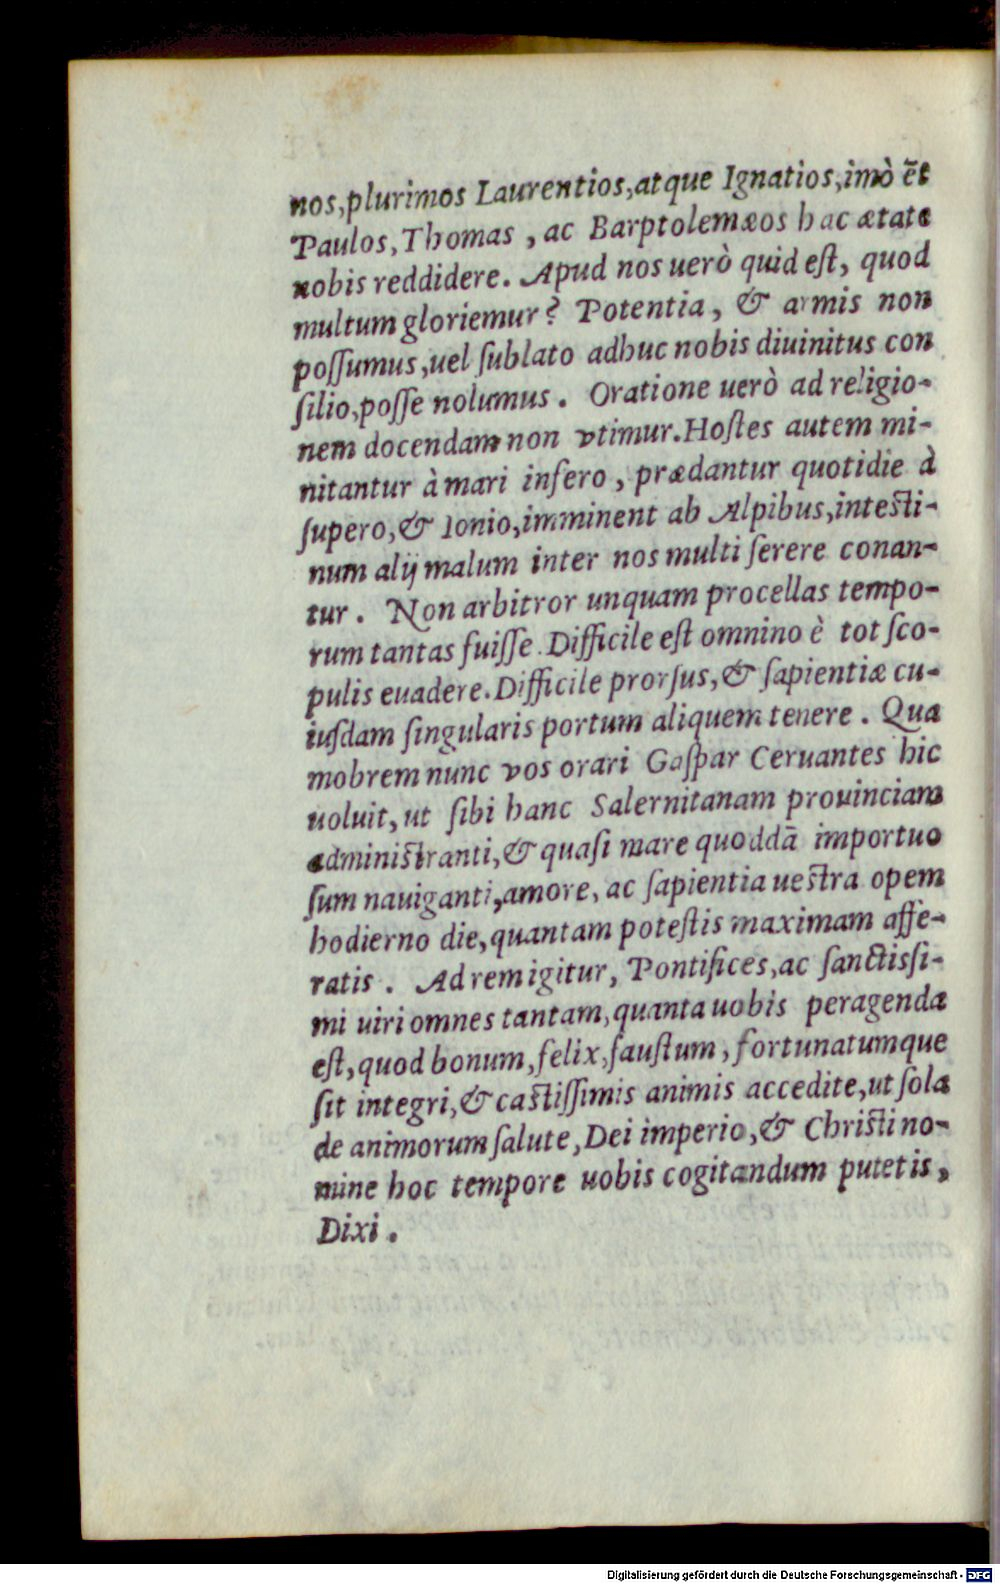 nos,plurimos Laurentios,atque Ignatios,imò ēt
Paulos, Thomas , ac Barptolemæos hac ætate
nobis reddidere. Apud nos uerò quid eſt, quod
multum gloriemur? Potentia, & armis non
poſſumus,uel ſublato adhuc nobis diuinitus con
ſilio,poſſe nolumus. Oratione uerò ad religio-
nem docendam non vtimur.Hoſtes autem mi-
nitantur à mari infero , prædantur quotidie à
ſupero,& Ionio,imminent ab Alpibus,inteſti-
num alij malum inter nos multi ſerere conan-
tur. Non arbitror unquam procellas tempo-
rum tantas fuiſſe.Difficile eſt omnino è tot ſco-
pulis euadere.Difficile prorſus,& ſapientiæ cu-
iuſdam ſingularis portum aliquem tenere. Qua
mobrem nunc vos orari Gaſpar Ceruantes hic
uoluit, ut ſibi hanc Salernitanam prouinciam
adminiſtranti,& quaſi mare quoddā importuo
ſum nauiganti,amore, ac ſapientia ueſtra opem
hodierno die,quantam poteſtis maximam affe-
ratis. Ad rem igitur, Pontifices,ac ſanctiſſi-
mi uiri omnes tantam,quanta uobis peragenda
eſt,quod bonum,felix,fauſtum,fortunatumque
ſit integri,& caſtiſſimis animis accedite,ut ſola
de animorum ſalute,Dei imperio,& Chriſti no-
mine hoc tempore uobis cogitandum putetis,
Dixi.
Digitalisierung gefördert durch die Deutsche Forschungsgemeinschaft - DFG